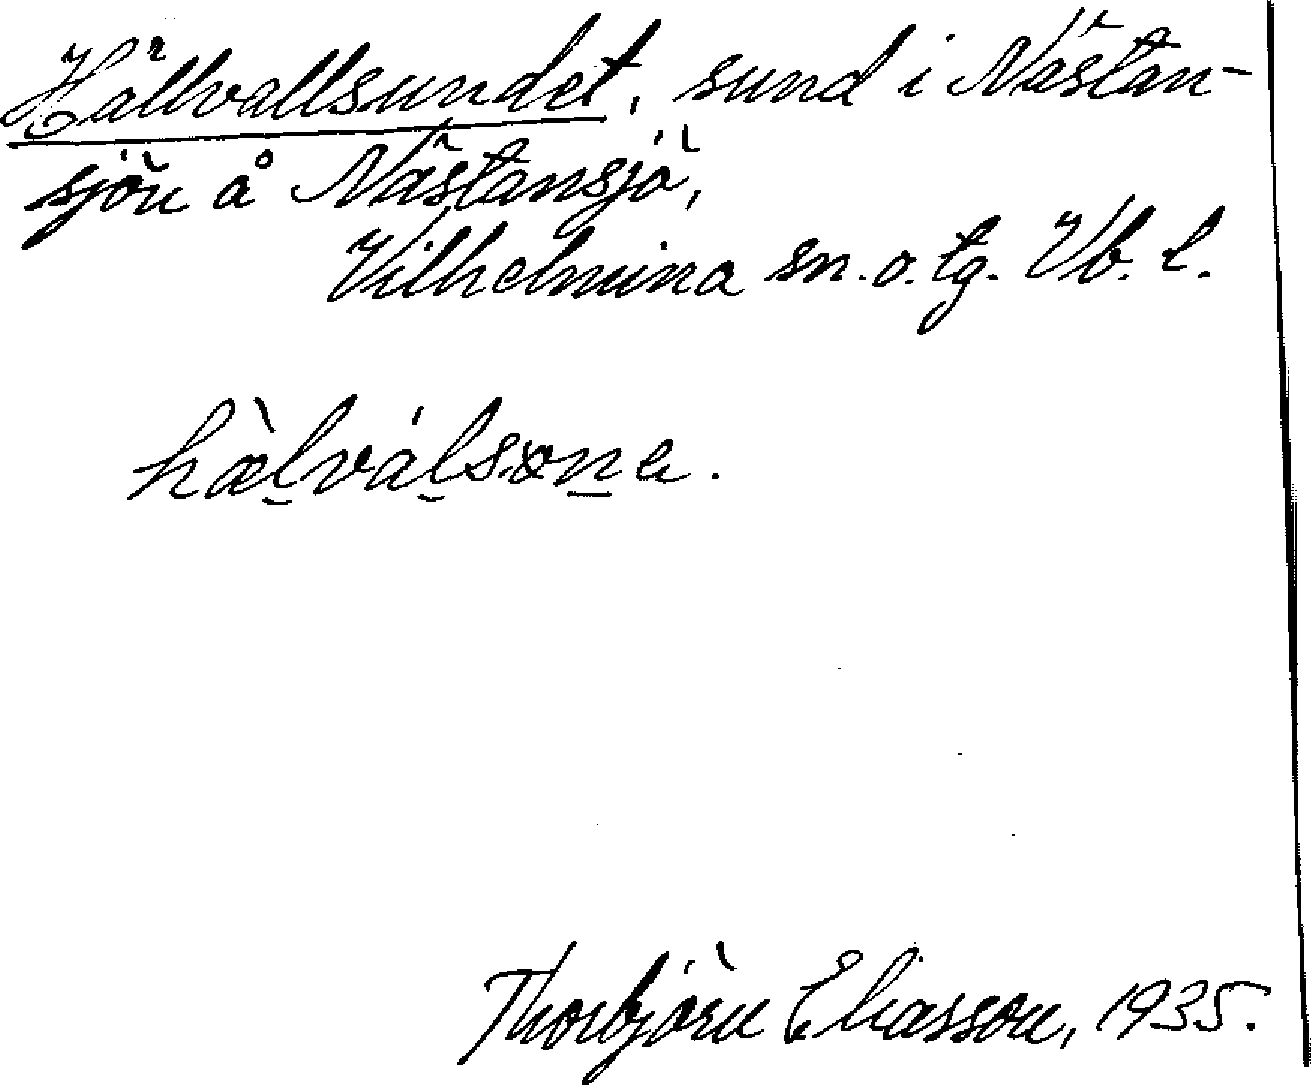 Hällvallsundet, sund i Nästan-
sjön å Nästansjö,
Vilhelmina sn. o. tg. Vb. l.
hæ̀l̠vál̠sɷn̠e.
Thorbjörn Eliasson, 1935.